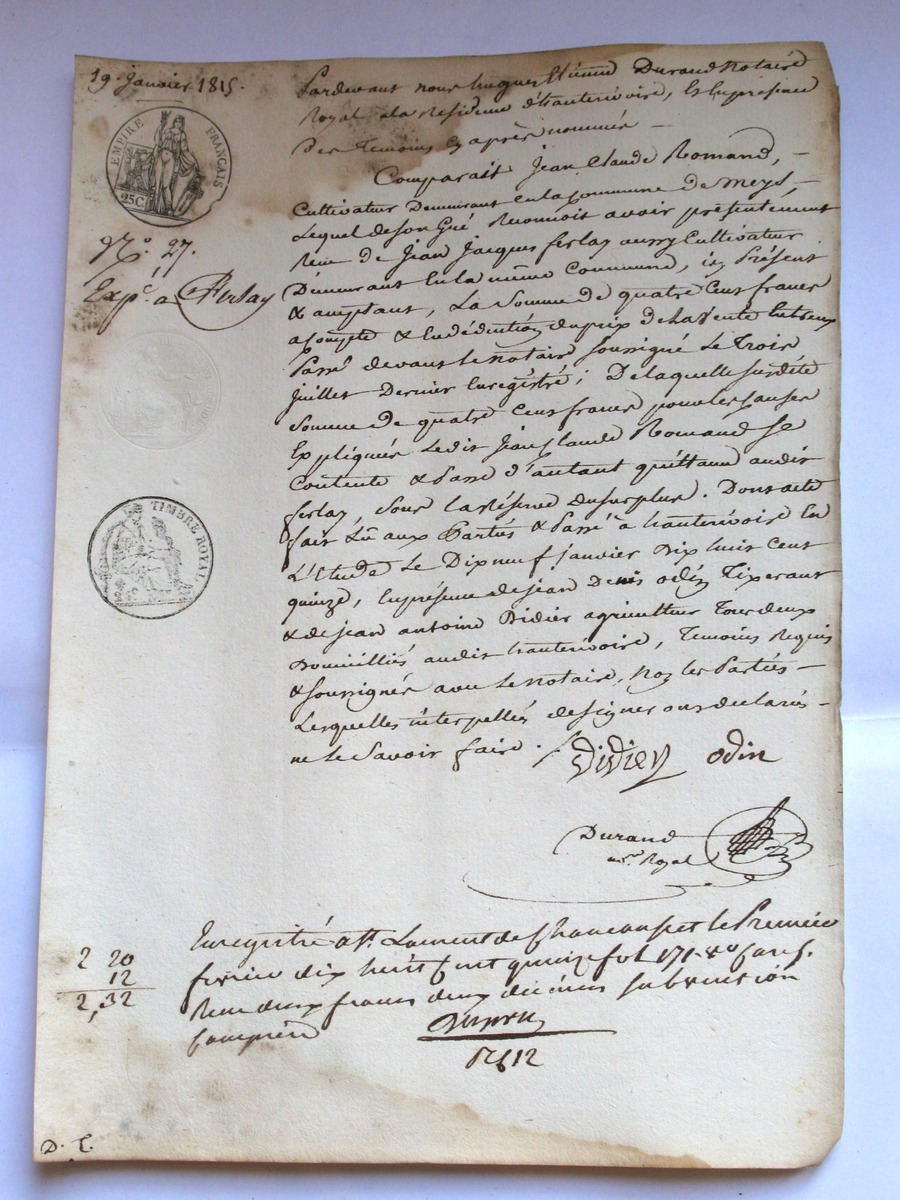 19 Janvier 1815.
EMPIRE FRANÇAIS
25C
N.° 27.
Exp.é a Ferlay
TIMBRE ROYAL
Pardevant nous hugues Etienne Durand Notaire
Royal a la Residence d'hauterivoire, En presence
Des Temoins Cy après nommés —
Comparait Jean Claude Romand, —
Cultivateur Demeurant En la Commune de Meys, —
Lequel de son Gré Reconnoit avoir présentement
Reçu de Jean Jacques ferlay aussy Cultivateur
Demeurant En la même Commune, icy Présent
& acceptant, La Somme de quatre Cent francs
a Compte & En déduction du prix de la Vente Entreux
Passé devant le Notaire soussigné Le Trois
juillet Dernier Enregistré ; De laquelle susdite
Somme de quatre Cent francs pour les Causes
Expliquées Ledit Jean Claude Romand Se
Contente & Passe d'autant quittance audit
ferlay, Sous la Réserve du surplus. Dont acte
fait Lû aux Parties & Passé à hauterivoire En
L'Etude Le Dix neuf janvier Dix huit Cent
quinze, En présence de jean Denis odin Tixerant
& de jean antoine Didier agriculteur Tous deux
Domiciliés audit hauterivoire, Temoins Requis
& soussignés avec Le Notaire, Non les Parties —
Lesquelles interpellées de signer ont declarés —
ne Le Savoir faire .
Didier odin
Durand
n.re Royal
2 20
12
2,32
Enregistré a St. Laurent de Chamousset le Premier
fevrier dix huit Cent quinze fol 171
Reçu deux francs deux decimes subvention
Comprise
12
D. L.